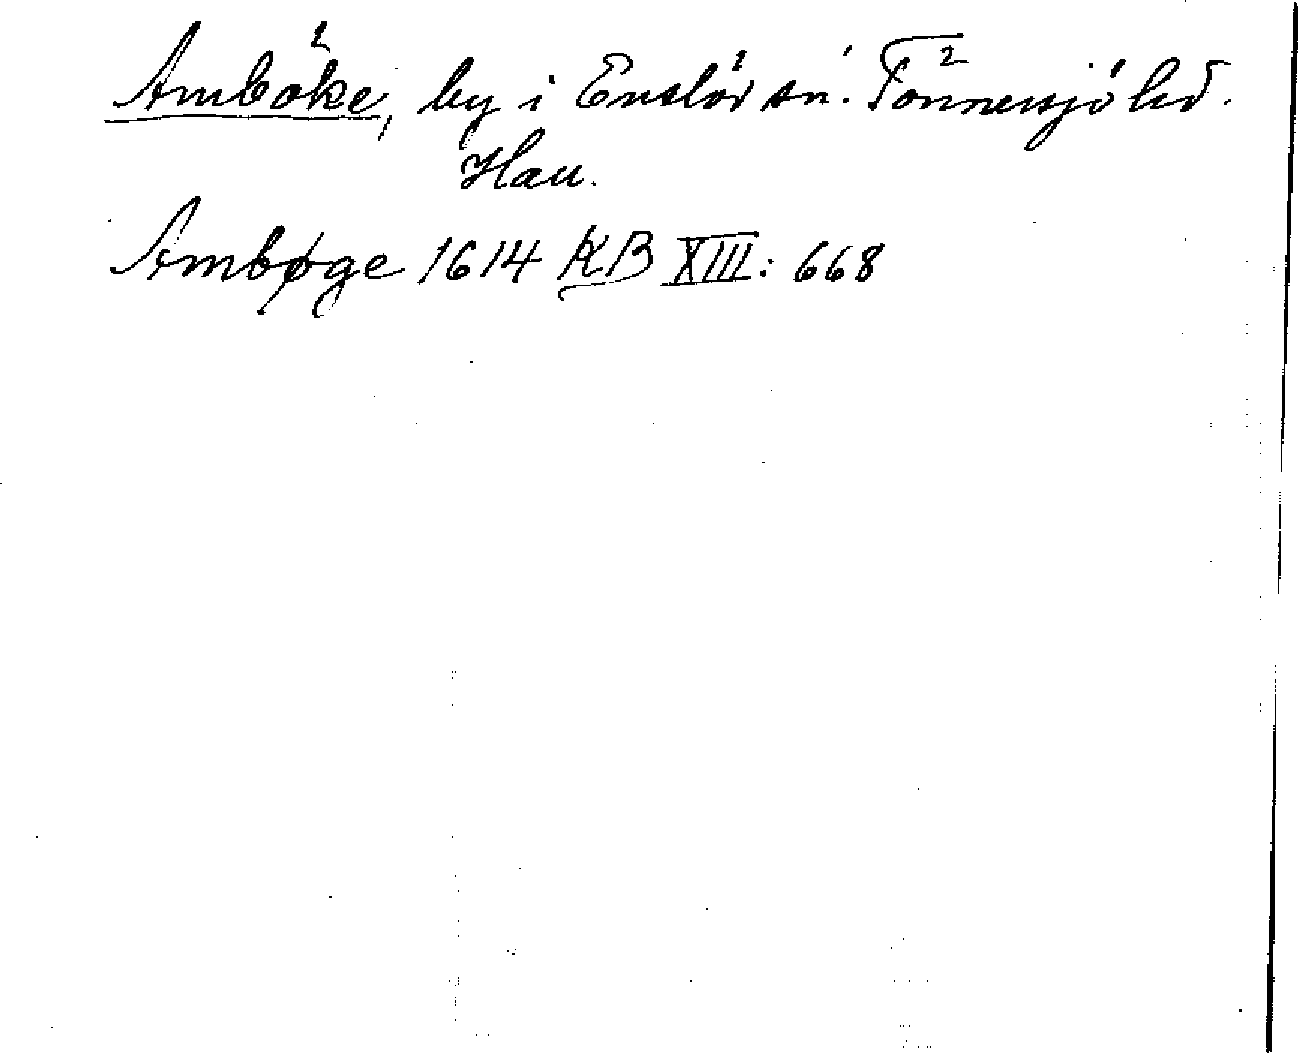 Amböke, by i Enslöv sn. Tönnersjö hd.
Hall.
Ambøge 1614 KB XIII: 668